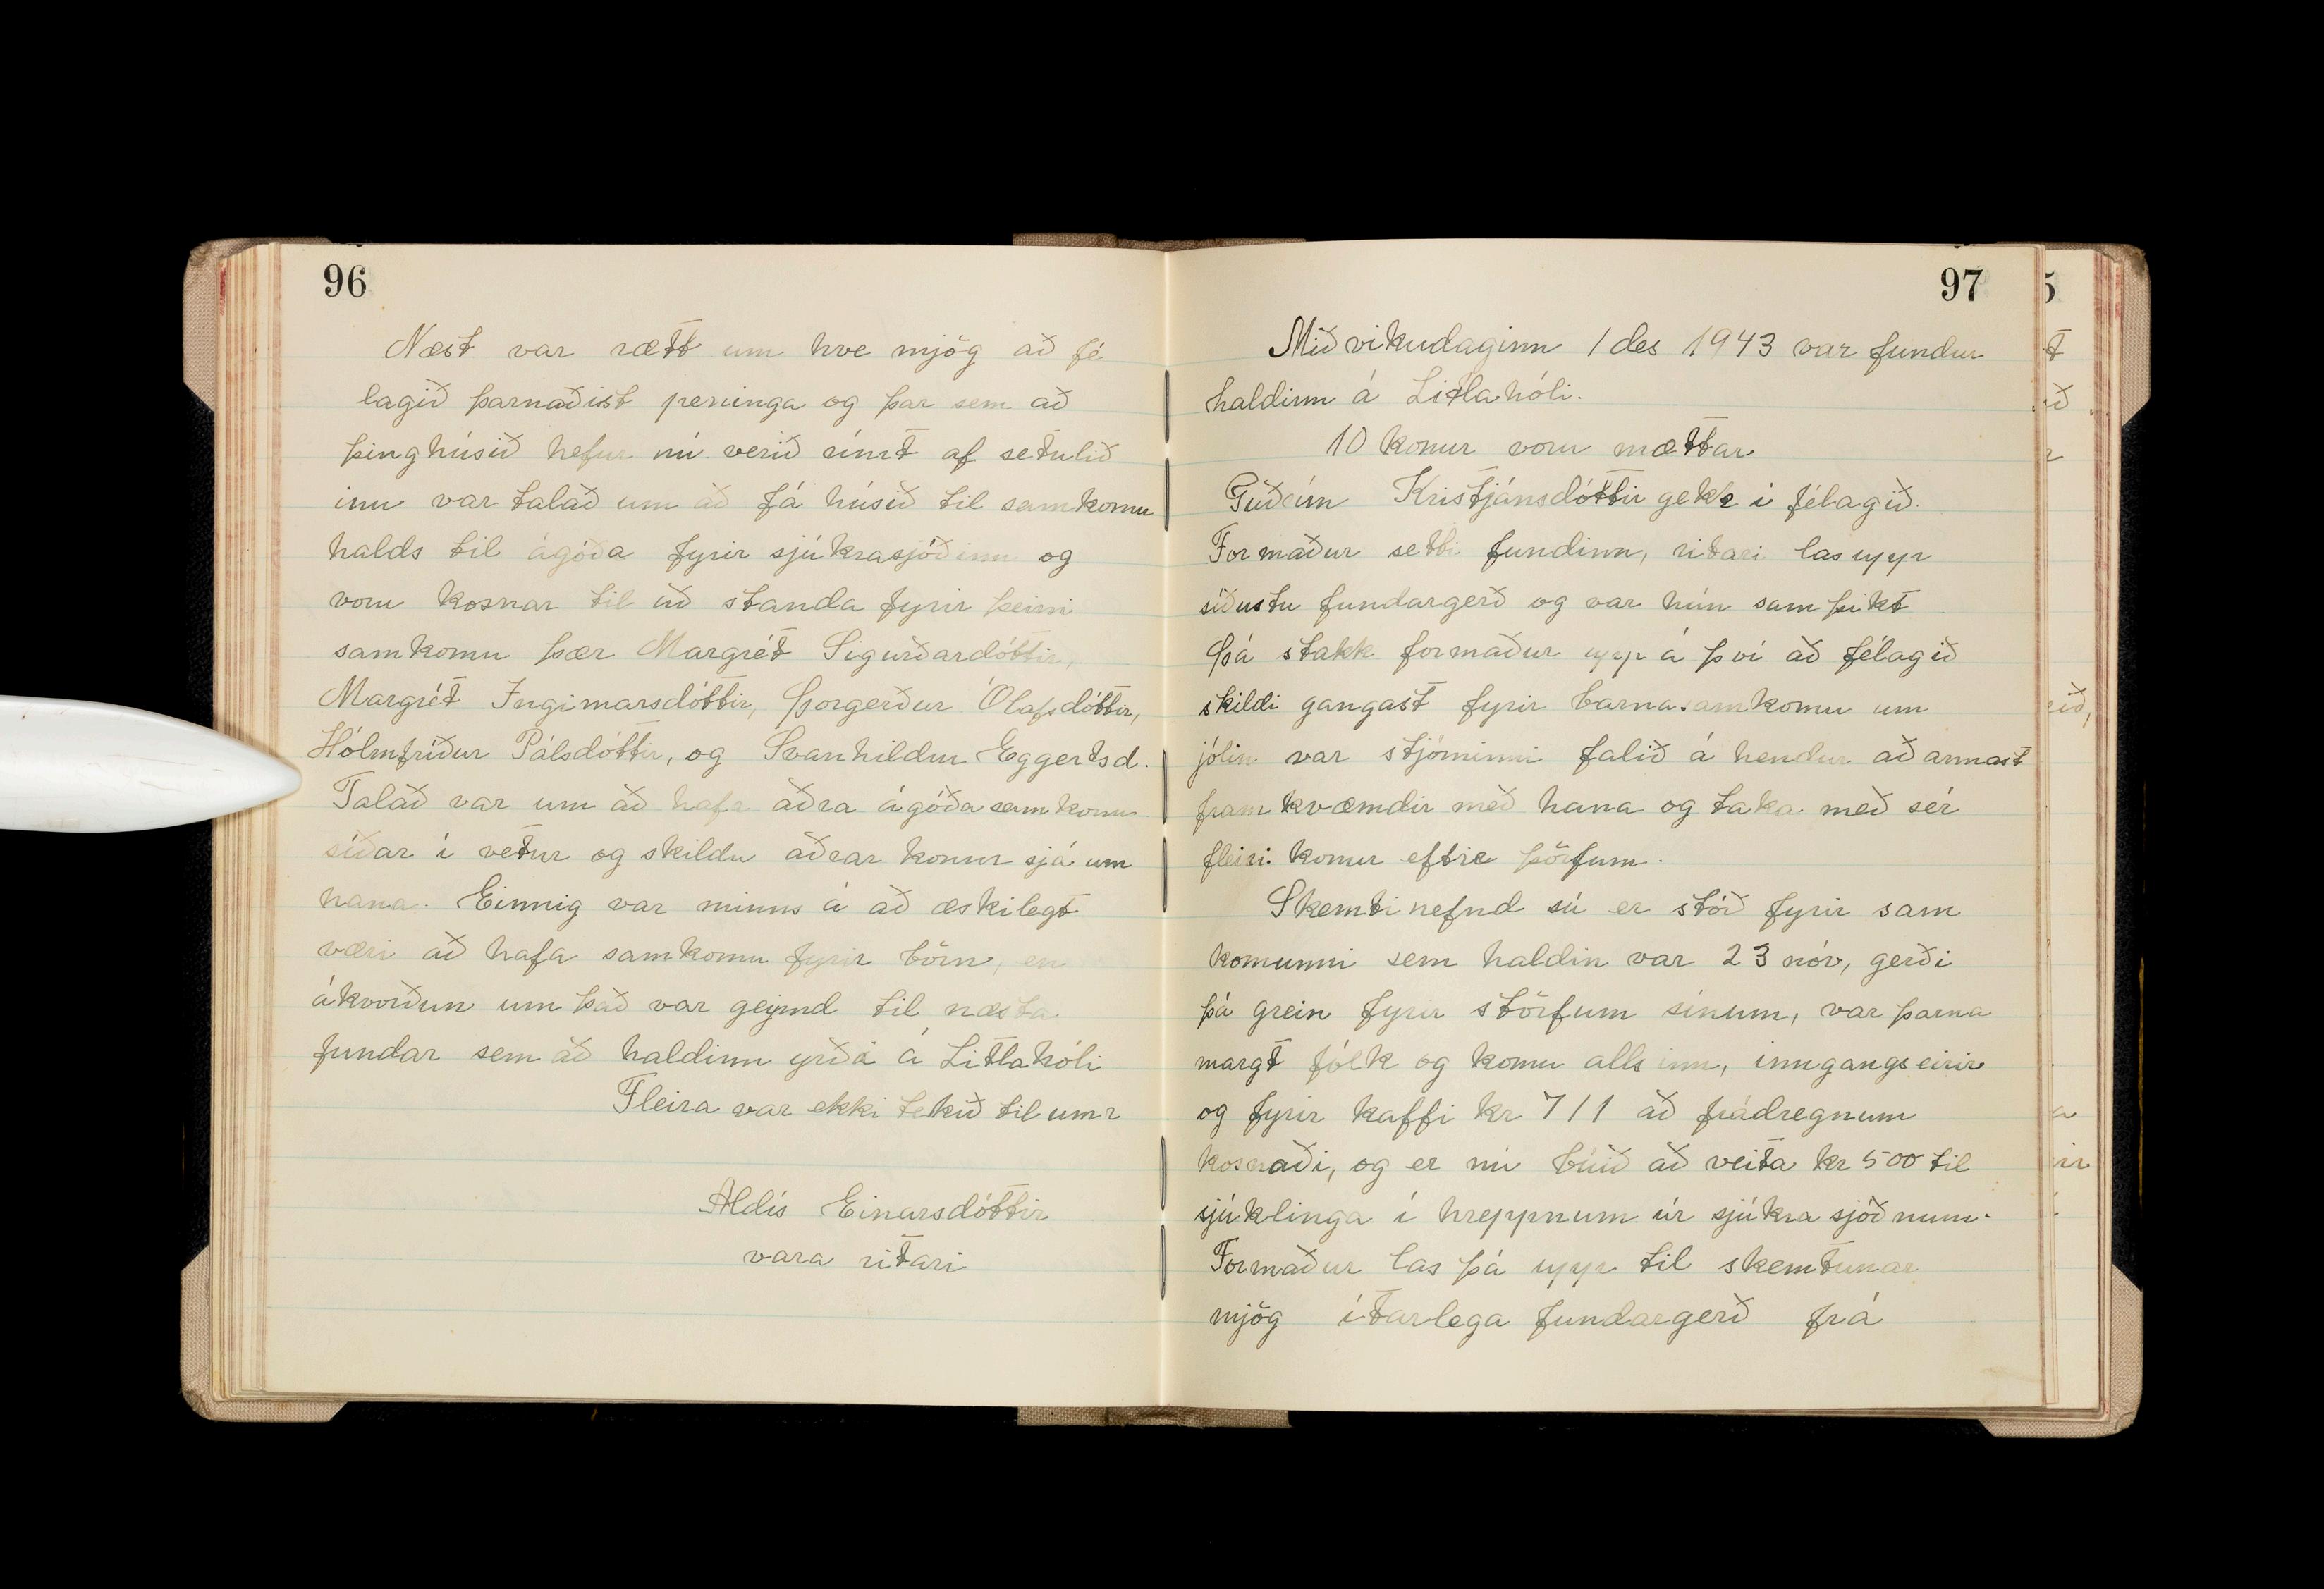 96
Næst var rætt um hve mjög að fé
lagið þarnaðist peninga og þar sem að
þinghúsið hefur nú verið rímt af setulið
inu var talað um að fá húsið til samkomu
halds til ágóða fyrir sjúkrasjóðinn og
voru kosnar til að standa fyrir þeirri
samkomu þær Margrét Sigurðardóttir,
Margrét Ingimarsdóttir, Þorgerður Ólafsdóttir,
Hólmfríður Pálsdóttir, og Svanhildur Eggertsd.
Talað var um að hafa aðra ágóðasamkomu
síðar í vetur og skildu aðrar konur sjá um
hana. Einnig var minns á að æskilegt
væri að hafa samkomu fyrir börn, en
ákvorðun um það var geymd til næsta
fundar sem að haldinn yrði á Litlahóli
Fleira var ekki tekið til umr
Aldís Einarsdóttir
vara ritari
97
Miðvikudaginn 1 des 1943 var fundur
haldinn á Litlahóli.
10 konur voru mættar
Kristjánsdóttir gekk í félagið.
Formaður setti fundinn, ritari las upp
síðustu fundargerð og var hún samþikt
Þá stakk formaður upp á því að félagið
skildi gangast fyrir barnasamkomu um
jólin var stjórninni falið á hendur að annast
framkvæmdir með hana og taka með sér
fleiri konur eftir þörfum.
Skemtinefnd sú er stóð fyrir sam
komunni sem haldin var 23 nóv, gerði
þá grein fyrir störfum sínum, var þarna
margt fólk og komu alls inn, inngangseirir
og fyrir kaffi kr 711 að frádregnum
kosnaði, og er nú búið að veita kr 500 til
sjúklinga í hreppnum úr sjúkrasjóðnum.
Formaður las þá upp til skemtunar
mjög ítarlega fundargerð frá